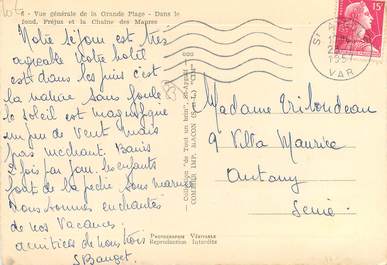 Vue générale de la Grande Plage - Dans le
fond, Fréjus et la Chaîne des Maures
Notre séjour est très
agréable notre hotel
est dans les pins c'est
la nature sans foule
le soleil est magnifique
un peu de vent mais
pas méchant. Bains
2 fois par jour. les enfants
font de la peche sous marine
Nous sommes enchantés
de nos vacances
amitiés de nous trois
S Bauget.
PHOTOGRAPHIE VÉRITABLE
Reproduction Interdite
COMBIER IMP. MACON (S.-et-L.) "CIM"
15F
1957
VAR
Madame Tribondeau
9 Villa Maurice
Antony
Seine